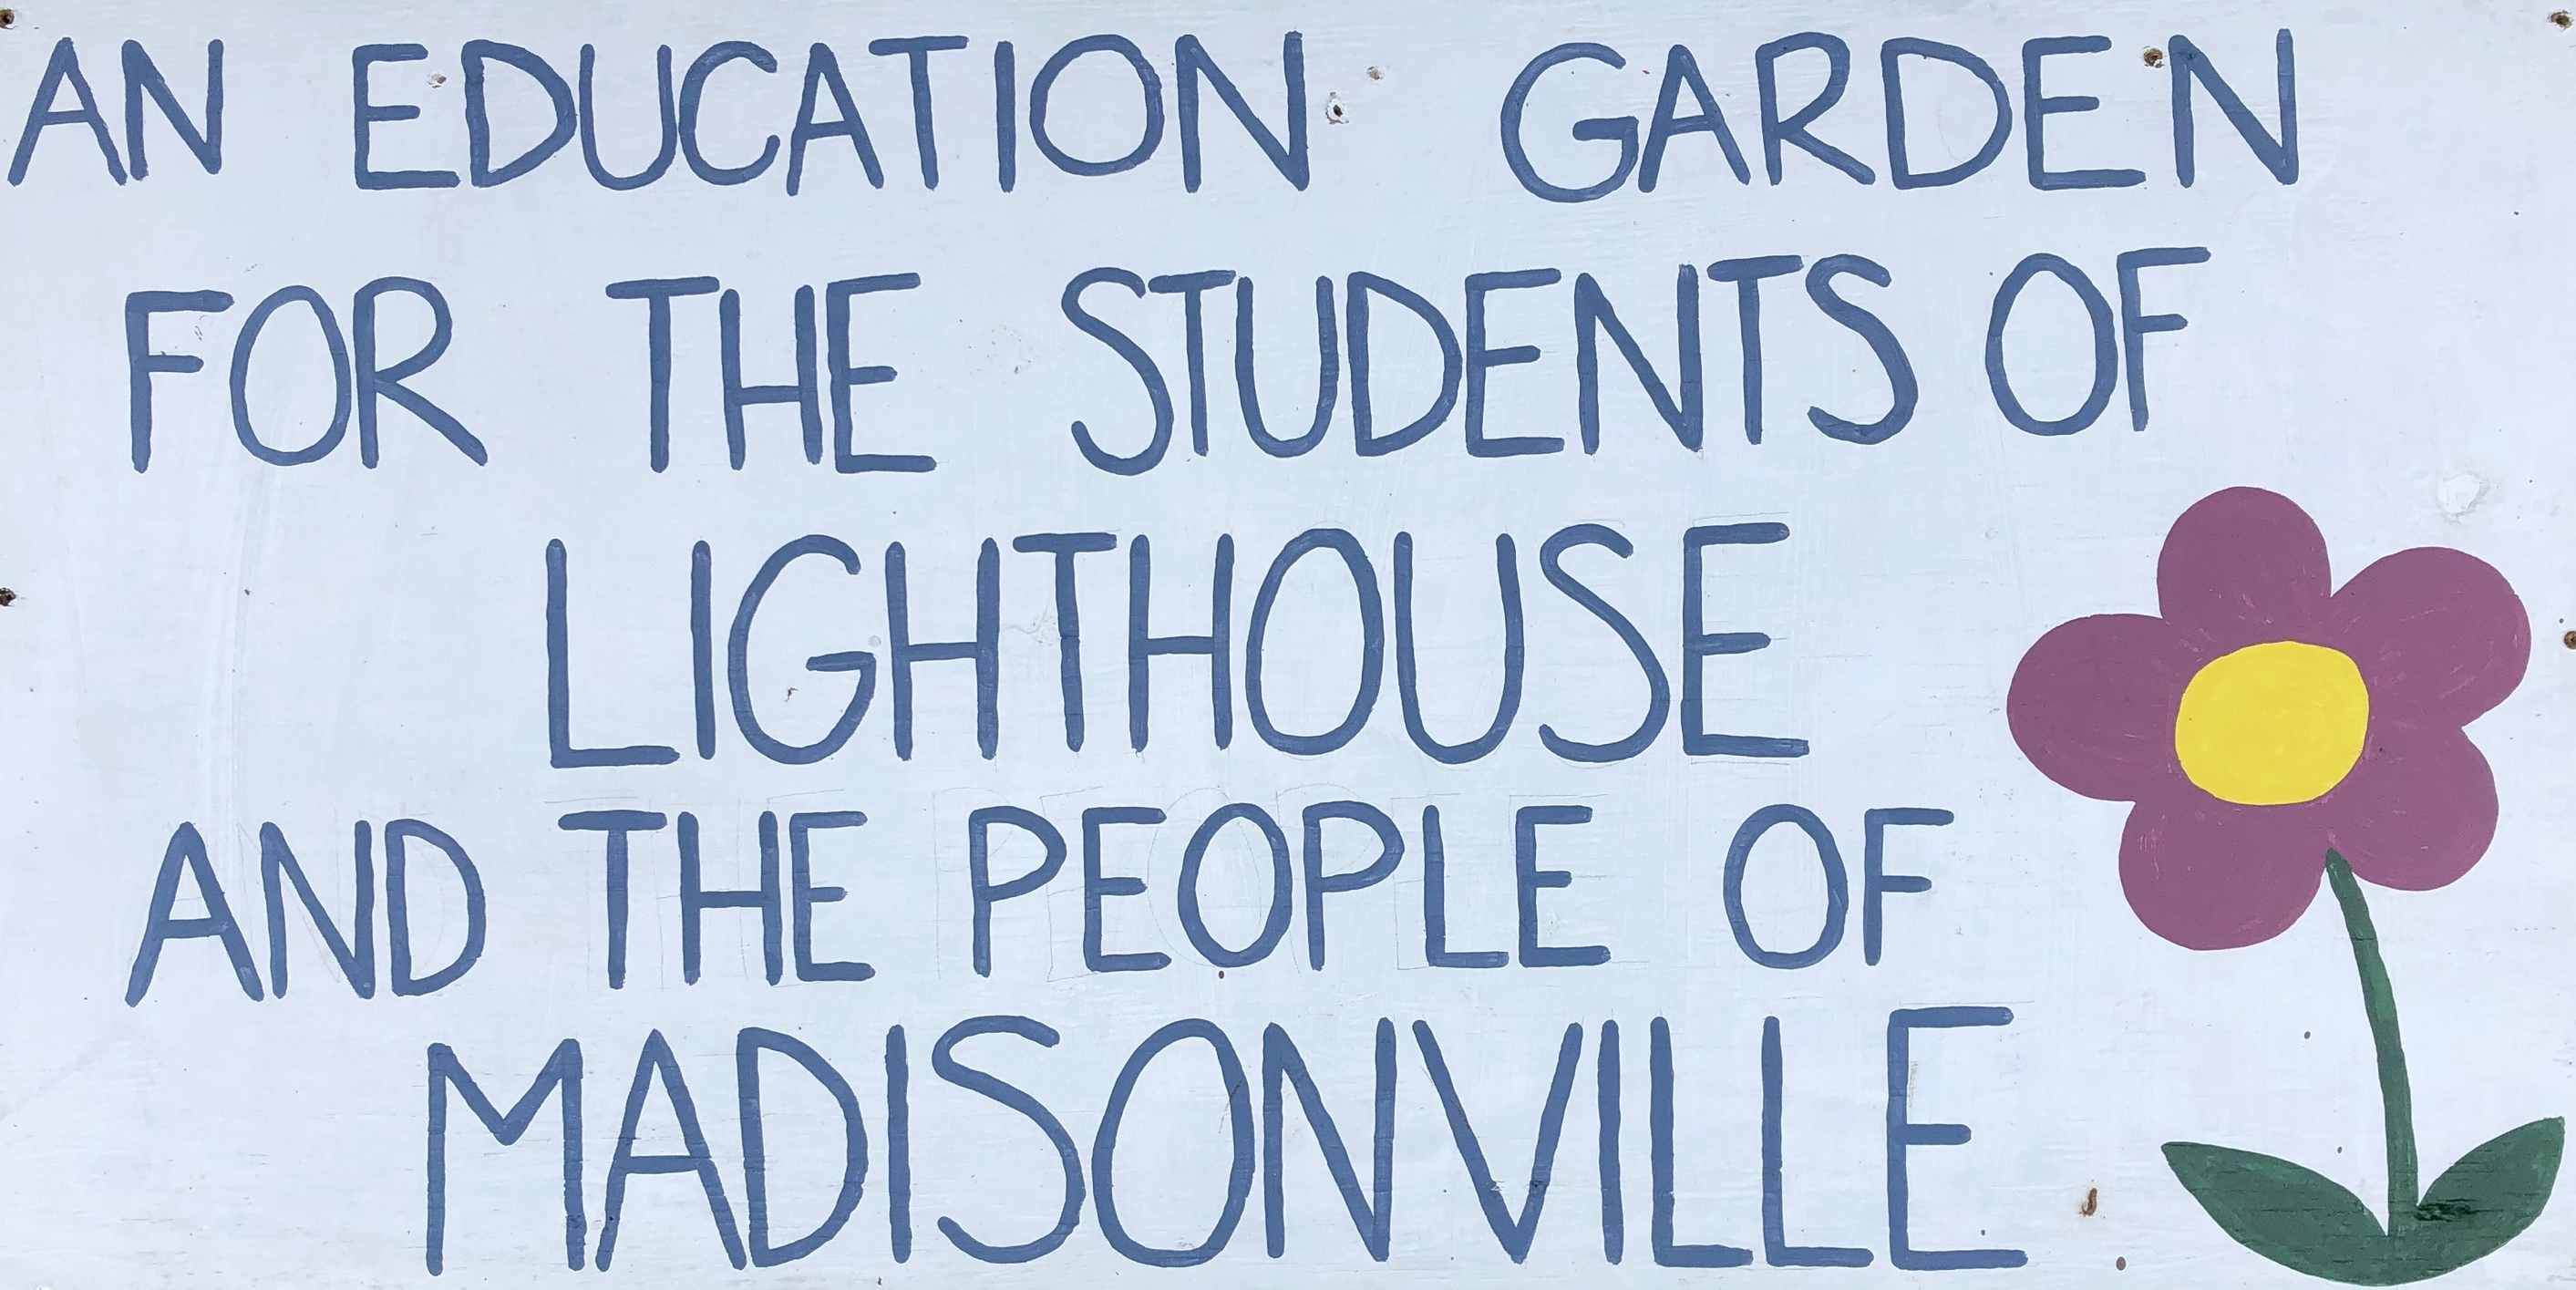 AN EDUCATION GARDEN
FOR THE STUDENTS OF
LIGHTHOUSE
AND THE PEOPLE OF
MADISONVILLE